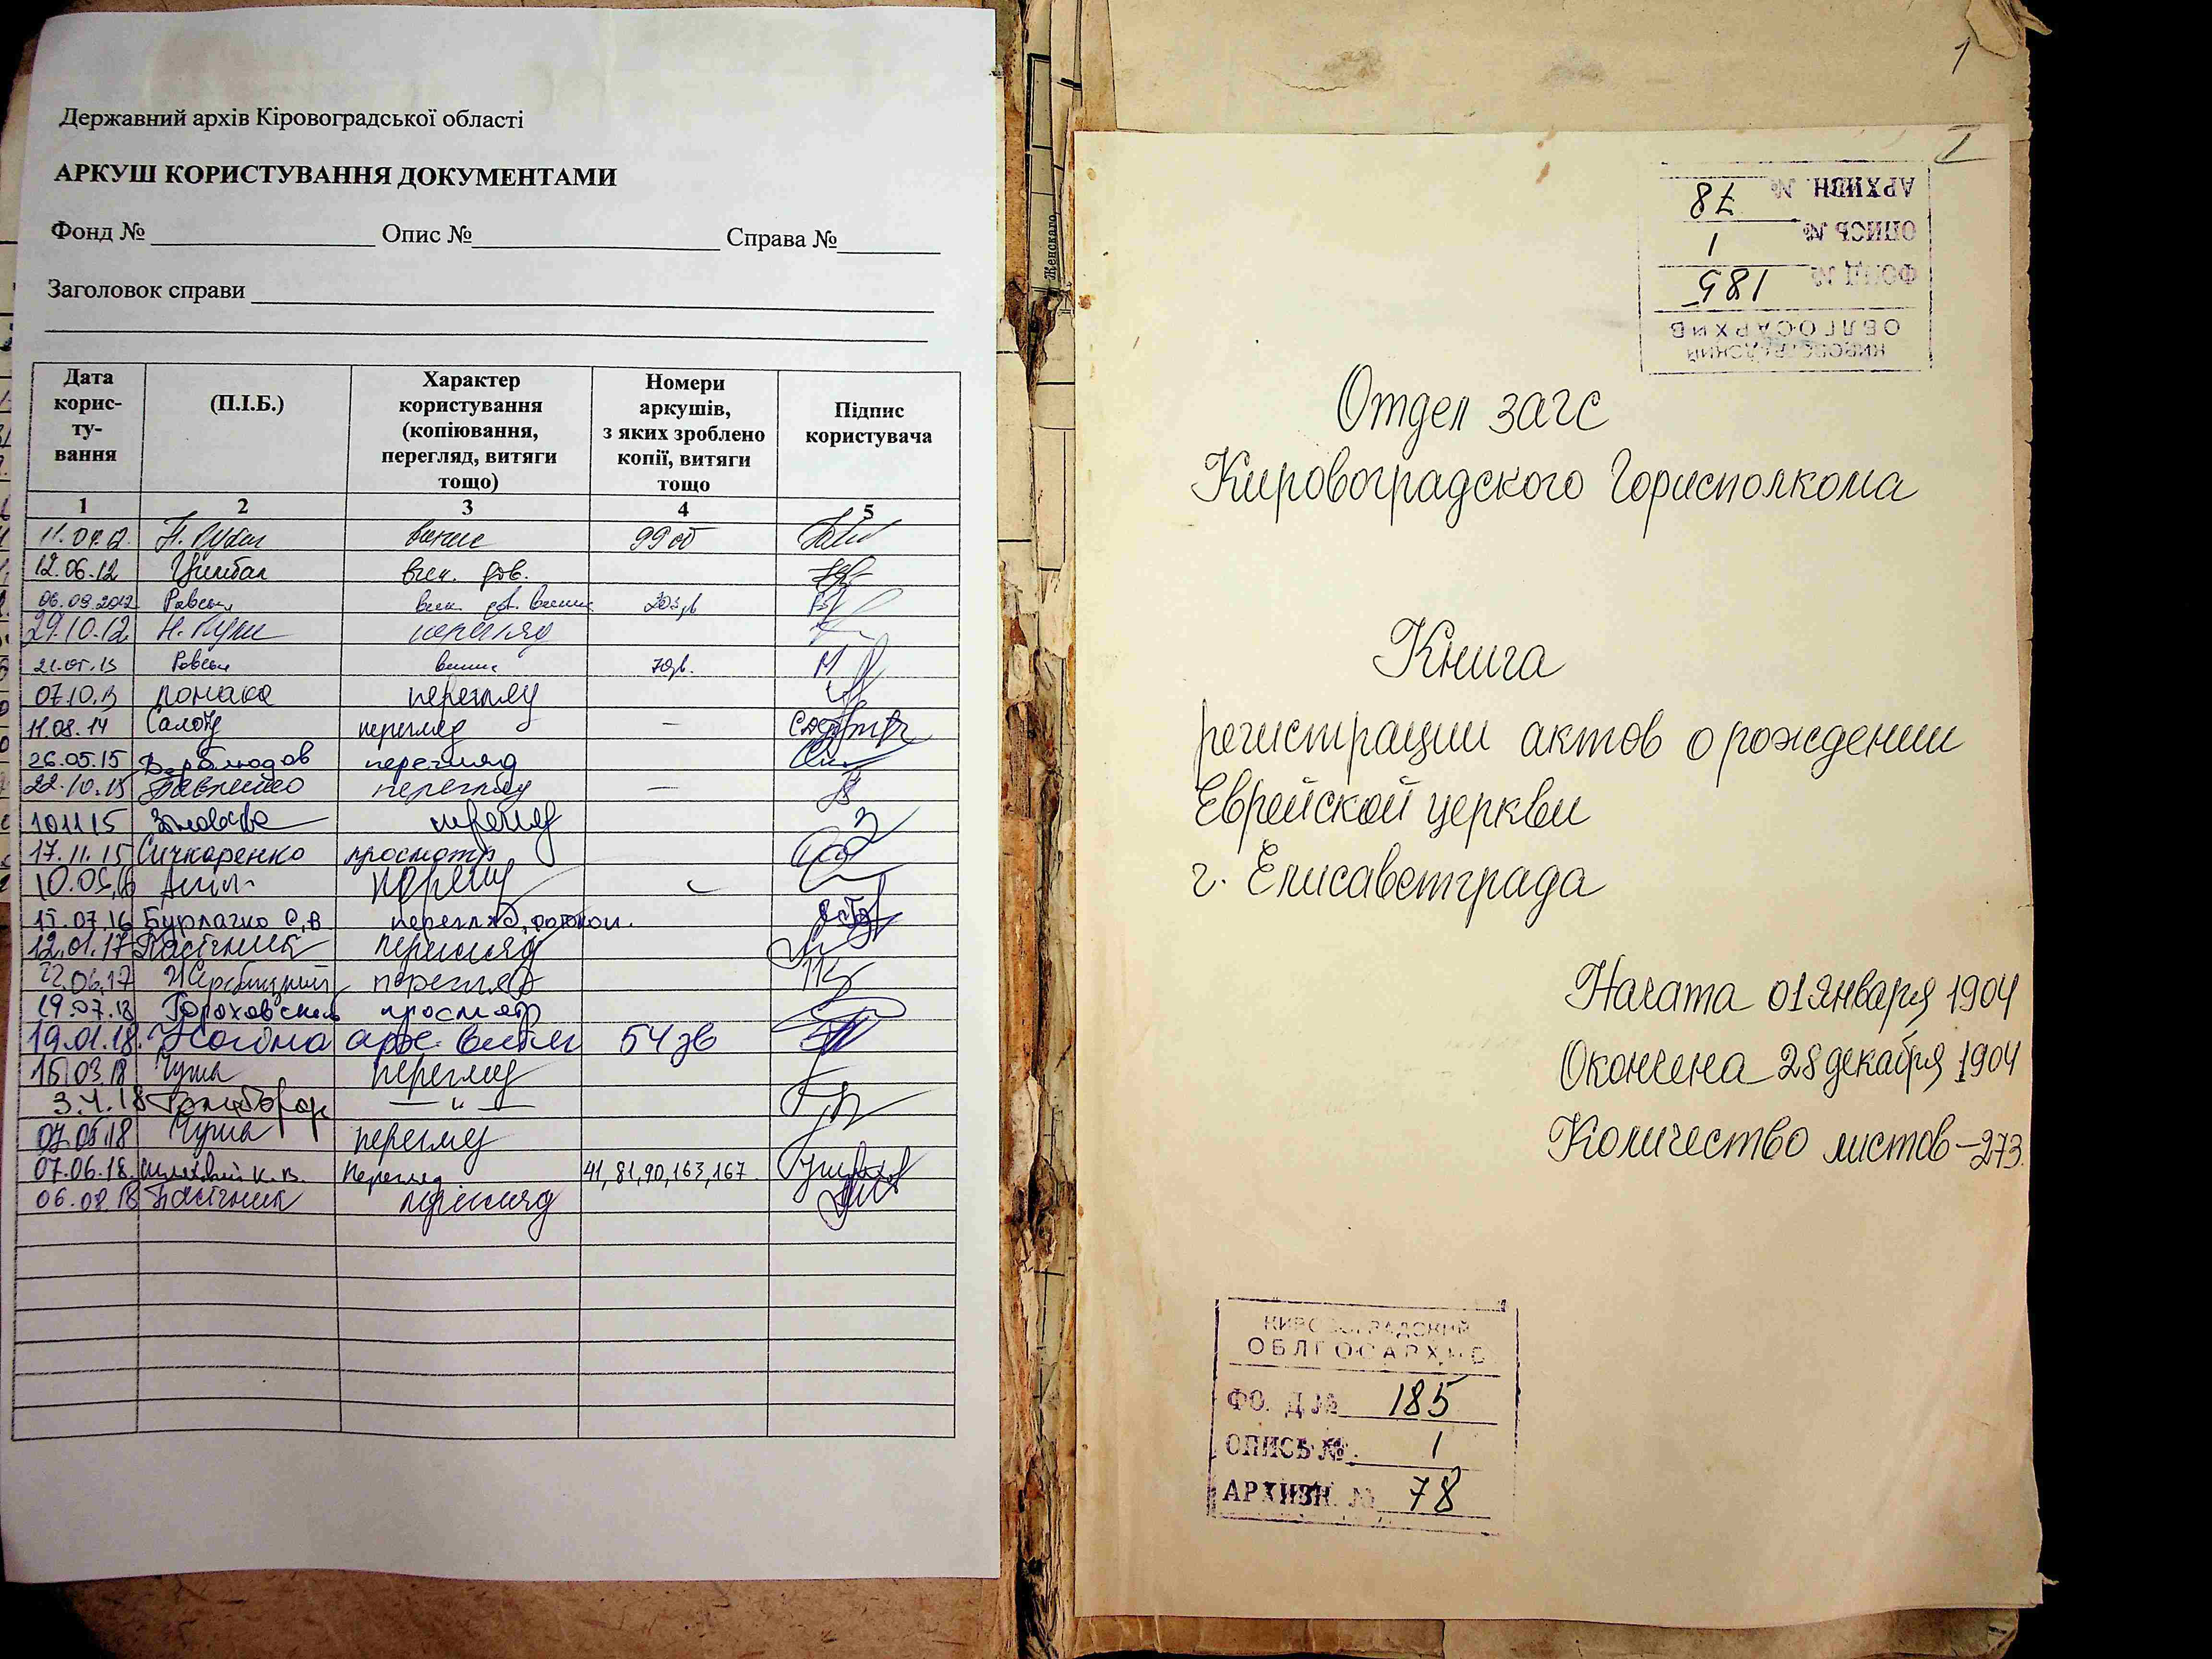 Державний архів Кіровоградської області
АРКУШ КОРИСТУВАННЯ ДОКУМЕНТАМИ
Фонд № Опис № Справа №
Заголовок справи
Дата корис-ту-вання
(П.І.Б.)
Характер користування (копіювання, перегляд, витяги тощо)
Номери аркушів, з яких зроблено копії, витяги тощо
Підпис користувача
1 2 3 4 5
12.06.12 Цимбал
06.09.2012
29.10.12 перегляд
07.10.13 перегляд
11.08.14 перегляд —
26.05.15 перегляд
22.10.15 перегляд —
10.11.15 перегляд
17.11.15 Сичкаренко просмотр
15.07.16 Бурлачко С.В. перегляд,
12.01.17 Пасічник перегляд
22.06.17 перегляд
19.07.18 просмотр
19.01.18 54 зв
15.03.18 Чума перегляд
3.4.18 — " —
07.05.18 Чума перегляд
07.06.18 К.В. Перегляд 41, 81, 90, 163, 167
06.08.18 Пасічник перегляд
Женскаго
1
I
КИРОВОГРАДСКИЙ
ОБЛГОСАРХИВ
ФОНД № 185
ОПИСЬ № 1
АРХИВН. № 78
Отдел загс
Кировоградского Горисполкома
Книга
регистрации актов о рождении
Еврейской церкви
г. Елисаветграда
Начата 01 января 1904
Окончена 28 декабря 1904
Количество листов – 273.
КИРОВОГРАДСКИЙ
ОБЛГОСАРХИВ
ФОНД № 185
ОПИСЬ № 1
АРХИВН. № 78